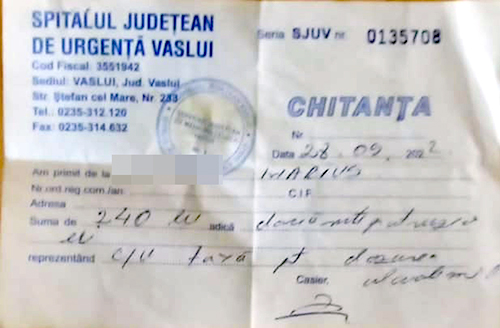 SPITALUL JUDEȚEAN
DE URGENȚĂ VASLUI
Cod Fiscal: 3551942
Sediul: VASLUI, Jud. Vaslui
Str. Ștefan cel Mare, Nr. 233
Tel.: 0235-312.120
Fax: 0235-314.632
Seria SJUV nr. 0135708
CHITANȚA
Nr.
Data 28.09.202
Am primit de la MARIUS
Nr.ord.reg.com./an: C.I.F.
Adresa
Suma de 240 lei adică două sute patruzeci
lei
reprezentând c/v taxă pt dozarea
Casier,